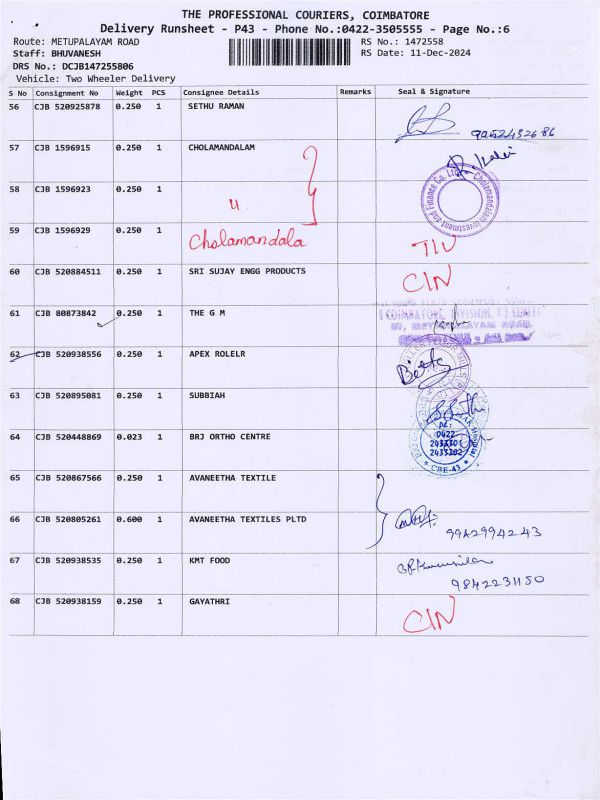 THE PROFESSIONAL COURIERS, COIMBATORE
Delivery Runsheet - P43 - Phone No.:0422-3505555 - Page No.:6
Route: METUPALAYAM ROAD RS No.: 1472558
Staff: BHUVANESH RS Date: 11-Dec-2024
DRS No.: DCJB147255806
Vehicle: Two Wheeler Delivery
S No Consignment No Weight PCS Consignee Details Remarks Seal & Signature
56 CJB 520925878 0.250 1 SETHU RAMAN
57 CJB 1596915 0.250 1 CHOLAMANDALAM
Cholamandalam Investment and Finance Co. Ltd.
58 CJB 1596923 0.250 1 "
59 CJB 1596929 0.250 1 Cholamandala
60 CJB 520884511 0.250 1 SRI SUJAY ENGG PRODUCTS CIN
61 CJB 80873842 0.250 1 THE G M
62 CJB 520938556 0.250 1 APEX ROLELR
63 CJB 520895081 0.250 1 SUBBIAH
64 CJB 520448869 0.023 1 BRJ ORTHO CENTRE
0422
2433301
2433302
CBE-43
65 CJB 520867566 0.250 1 AVANEETHA TEXTILE
66 CJB 520805261 0.600 1 AVANEETHA TEXTILES PLTD
9942994243
67 CJB 520938535 0.250 1 KMT FOOD
9842231150
68 CJB 520938159 0.250 1 GAYATHRI CIN